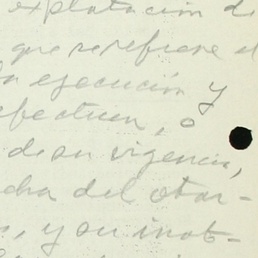 explotación de
que se refiere el
la ejecución y
efectuen, o
de su vigencia,
echa del otor-
, y su inob-